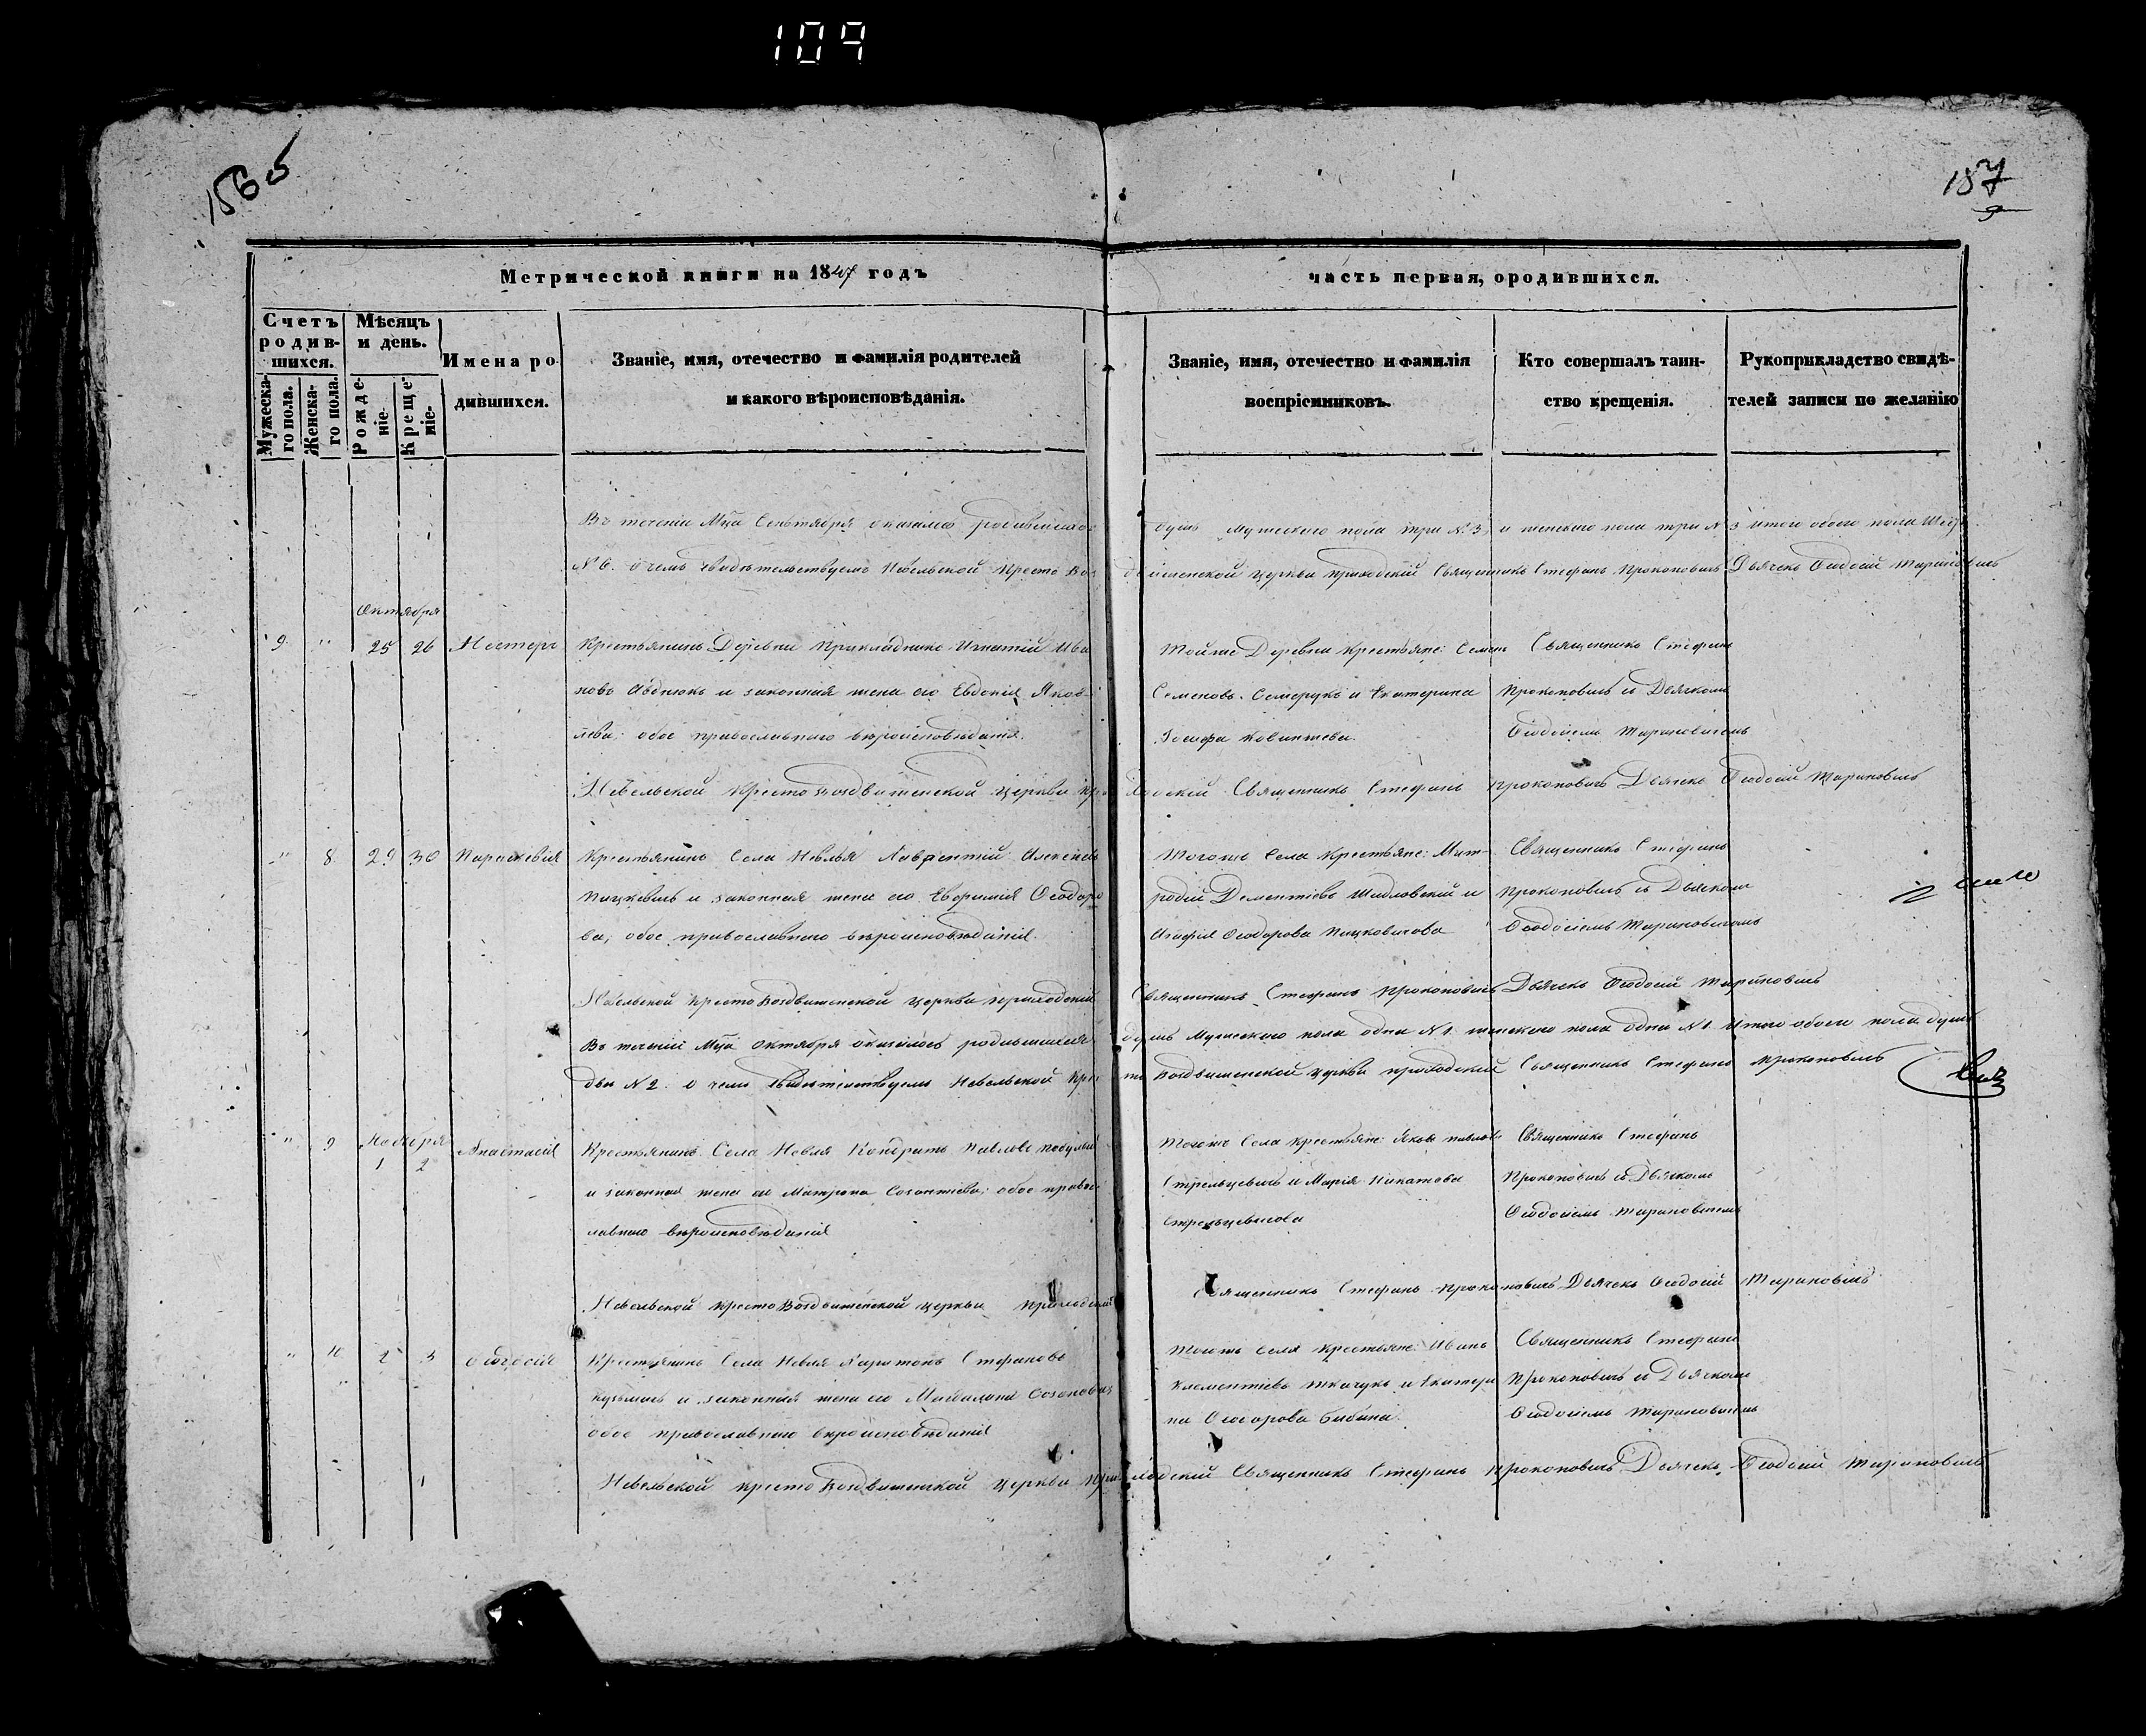 109
187
9
Метрической книги на 1847 годъ
часть первая, ородившихся.
Счетъ родив-шихся.
Мѣсяцъ и день.
Имена ро-дившихся.
Званіе, имя, отечество и фамилія родителей
и какого вѣроисповѣданія.
Званіе, имя, отечество и фамилія
воспріемниковъ.
Кто совершалъ таин-
ство крещенія.
Рукоприкладство свидѣ-
телей записи по желанію
Мужеска-го пола.
Женска-го пола.
Рожде-ніе.
Креще-ніе.
Въ теченіи Мца Сентября оказалось родившихся душъ мужеского пола три №3, и женского пола три № 3 итого обоего пола
№ 6. о чемъ свидѣтельствуемъ Невельской Кресто Воз движенской Церкви приходскій Священникъ Стефанъ Прокоповичъ Дьячекъ Ѳеодосій Мариновичъ
Октября
9 " 25 26 Нестеръ
Крестьянинъ Деревни Прикладникъ Игнатій Ива
новъ Авдеюкъ и законная жена его Евдокія Яков-
лева; обое православнаго вѣроисповѣданія.
Тойже Деревни Крестьяне: Семенъ
Семеновъ Семерукъ и Екатерина
Іосифа
Священникъ Стефанъ
Прокоповичъ съ Дьячкомъ
Ѳеодосіемъ Мариновичемъ
Невельской Кресто Воздвиженской Церкви приходскій Священникъ Стефанъ Прокоповичъ Дьячекъ Ѳеодосій Мариновичъ
" 8 29 30 Параскевія
Крестьянинъ Села Невля Лаврентій Алексѣевъ
Пацкевичъ и законная жена его Евфимія Ѳеодоро
ва; обое православнаго вѣроисповѣданія.
Тогожъ Села Крестьяне: Мит-
рофій Дементіевъ Шидловскій и
Агафія Ѳеодорова Пацковичова
Священникъ Стефанъ
Прокоповичъ съ Дьячкомъ
Ѳеодосіемъ Мариновичемъ
Невельской Кресто Воздвиженской Церкви приходскій Священникъ Стефанъ Прокоповичъ Дьячекъ Ѳеодосій Мариновичъ
Въ теченіи Мца Октября оказалось родившихся душъ Мужеского пола одна №1. женского пола одна №1. Итого обоего пола душъ
двѣ № 2. о чемъ свидѣтельствуемъ Невельской Крес то Воздвиженской Церкви приходскій Священникъ Стефанъ Прокоповичъ
Ноября
" 9 1 2 Анастасія
Крестьянинъ Села Невля Кондратъ Павловъ
и законная жена его Матрона Созонтіева; обое правос
лавнаго вѣроисповѣданія
Тогожъ Села Крестьяне: Яковъ Павловъ
Стрельцевичъ и Марія
Стрельцевичова
Священникъ Стефанъ
Прокоповичъ съ Дьячкомъ
Ѳеодосіемъ Мариновичемъ
Невельской Кресто Воздвиженской Церкви Приходскій Священникъ Стефанъ Прокоповичъ Дьячекъ Ѳеодосій Мариновичъ
" 10 2 3 Ѳеодосія
Крестьянинъ Села Невля Харитонъ Стефановъ
Кузьмичъ и законная жена его Магдалина Созонова
обое православнаго вѣроисповѣданія
Тогожъ Села Крестьяне: Иванъ
Климентіевъ Ткачукъ и Екатери
на Ѳеодорова
Священникъ Стефанъ
Прокоповичъ съ Дьячкомъ
Ѳеодосіемъ Мариновичемъ
Невельской Кресто Воздвиженской Церкви Приходскій Священникъ Стефанъ Прокоповичъ Дьячекъ Ѳеодосій Мариновичъ